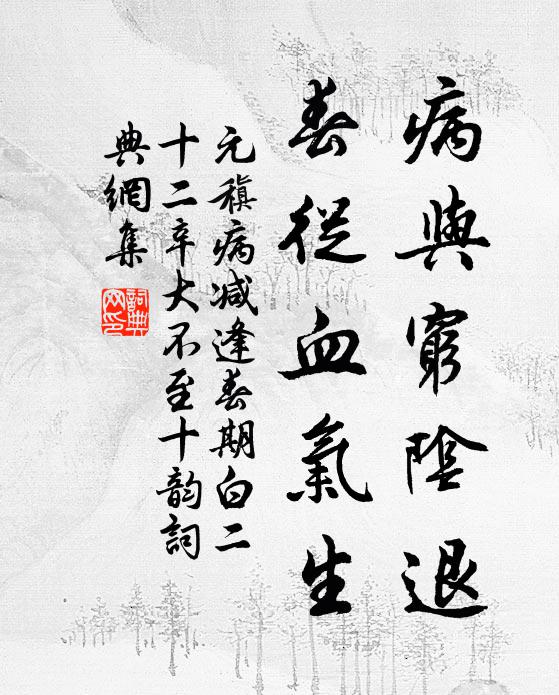 病與窮陰退
春從血氣生
元稹病减逢春期白二
十二辛大不至十韵詞
典網集
詞典網印